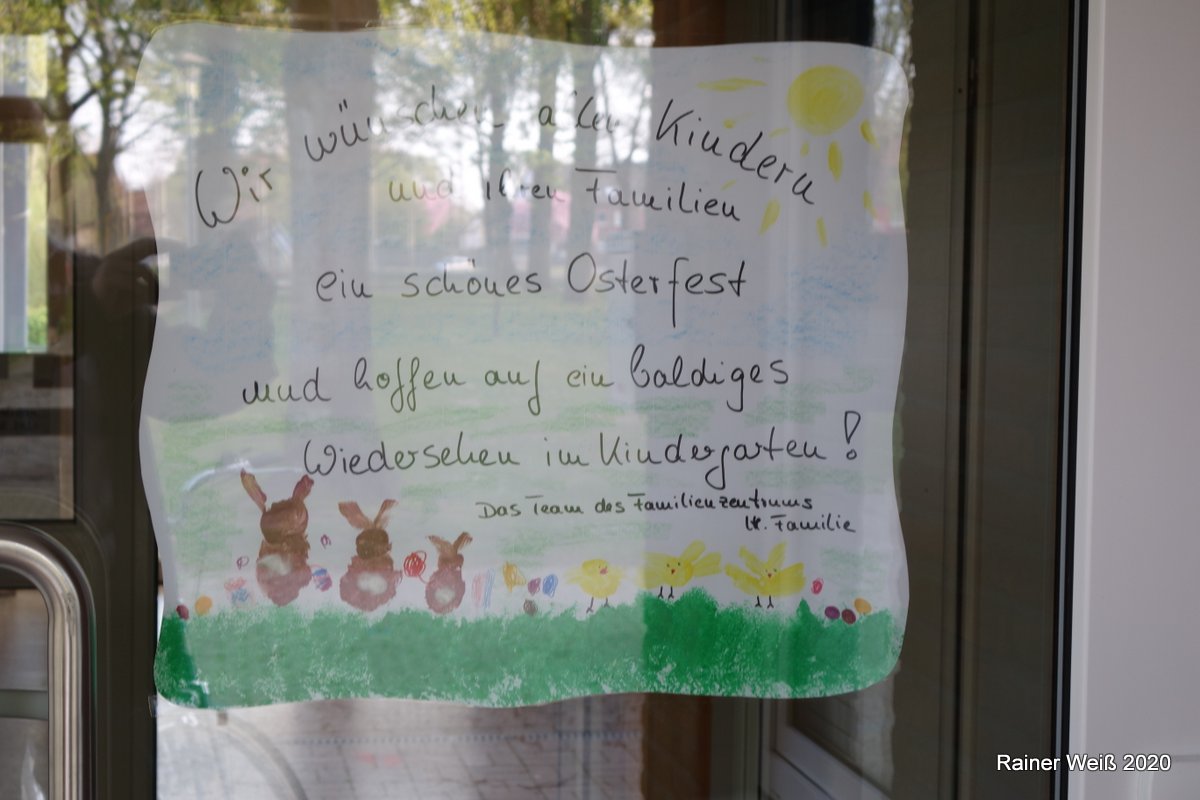 Wir wünschen allen Kindern
und ihren Familien
ein schönes Osterfest
und hoffen auf ein baldiges
Wiedersehen im Kindergarten!
Das Team des Familienzentrums
Hl. Familie
Rainer Weiß 2020